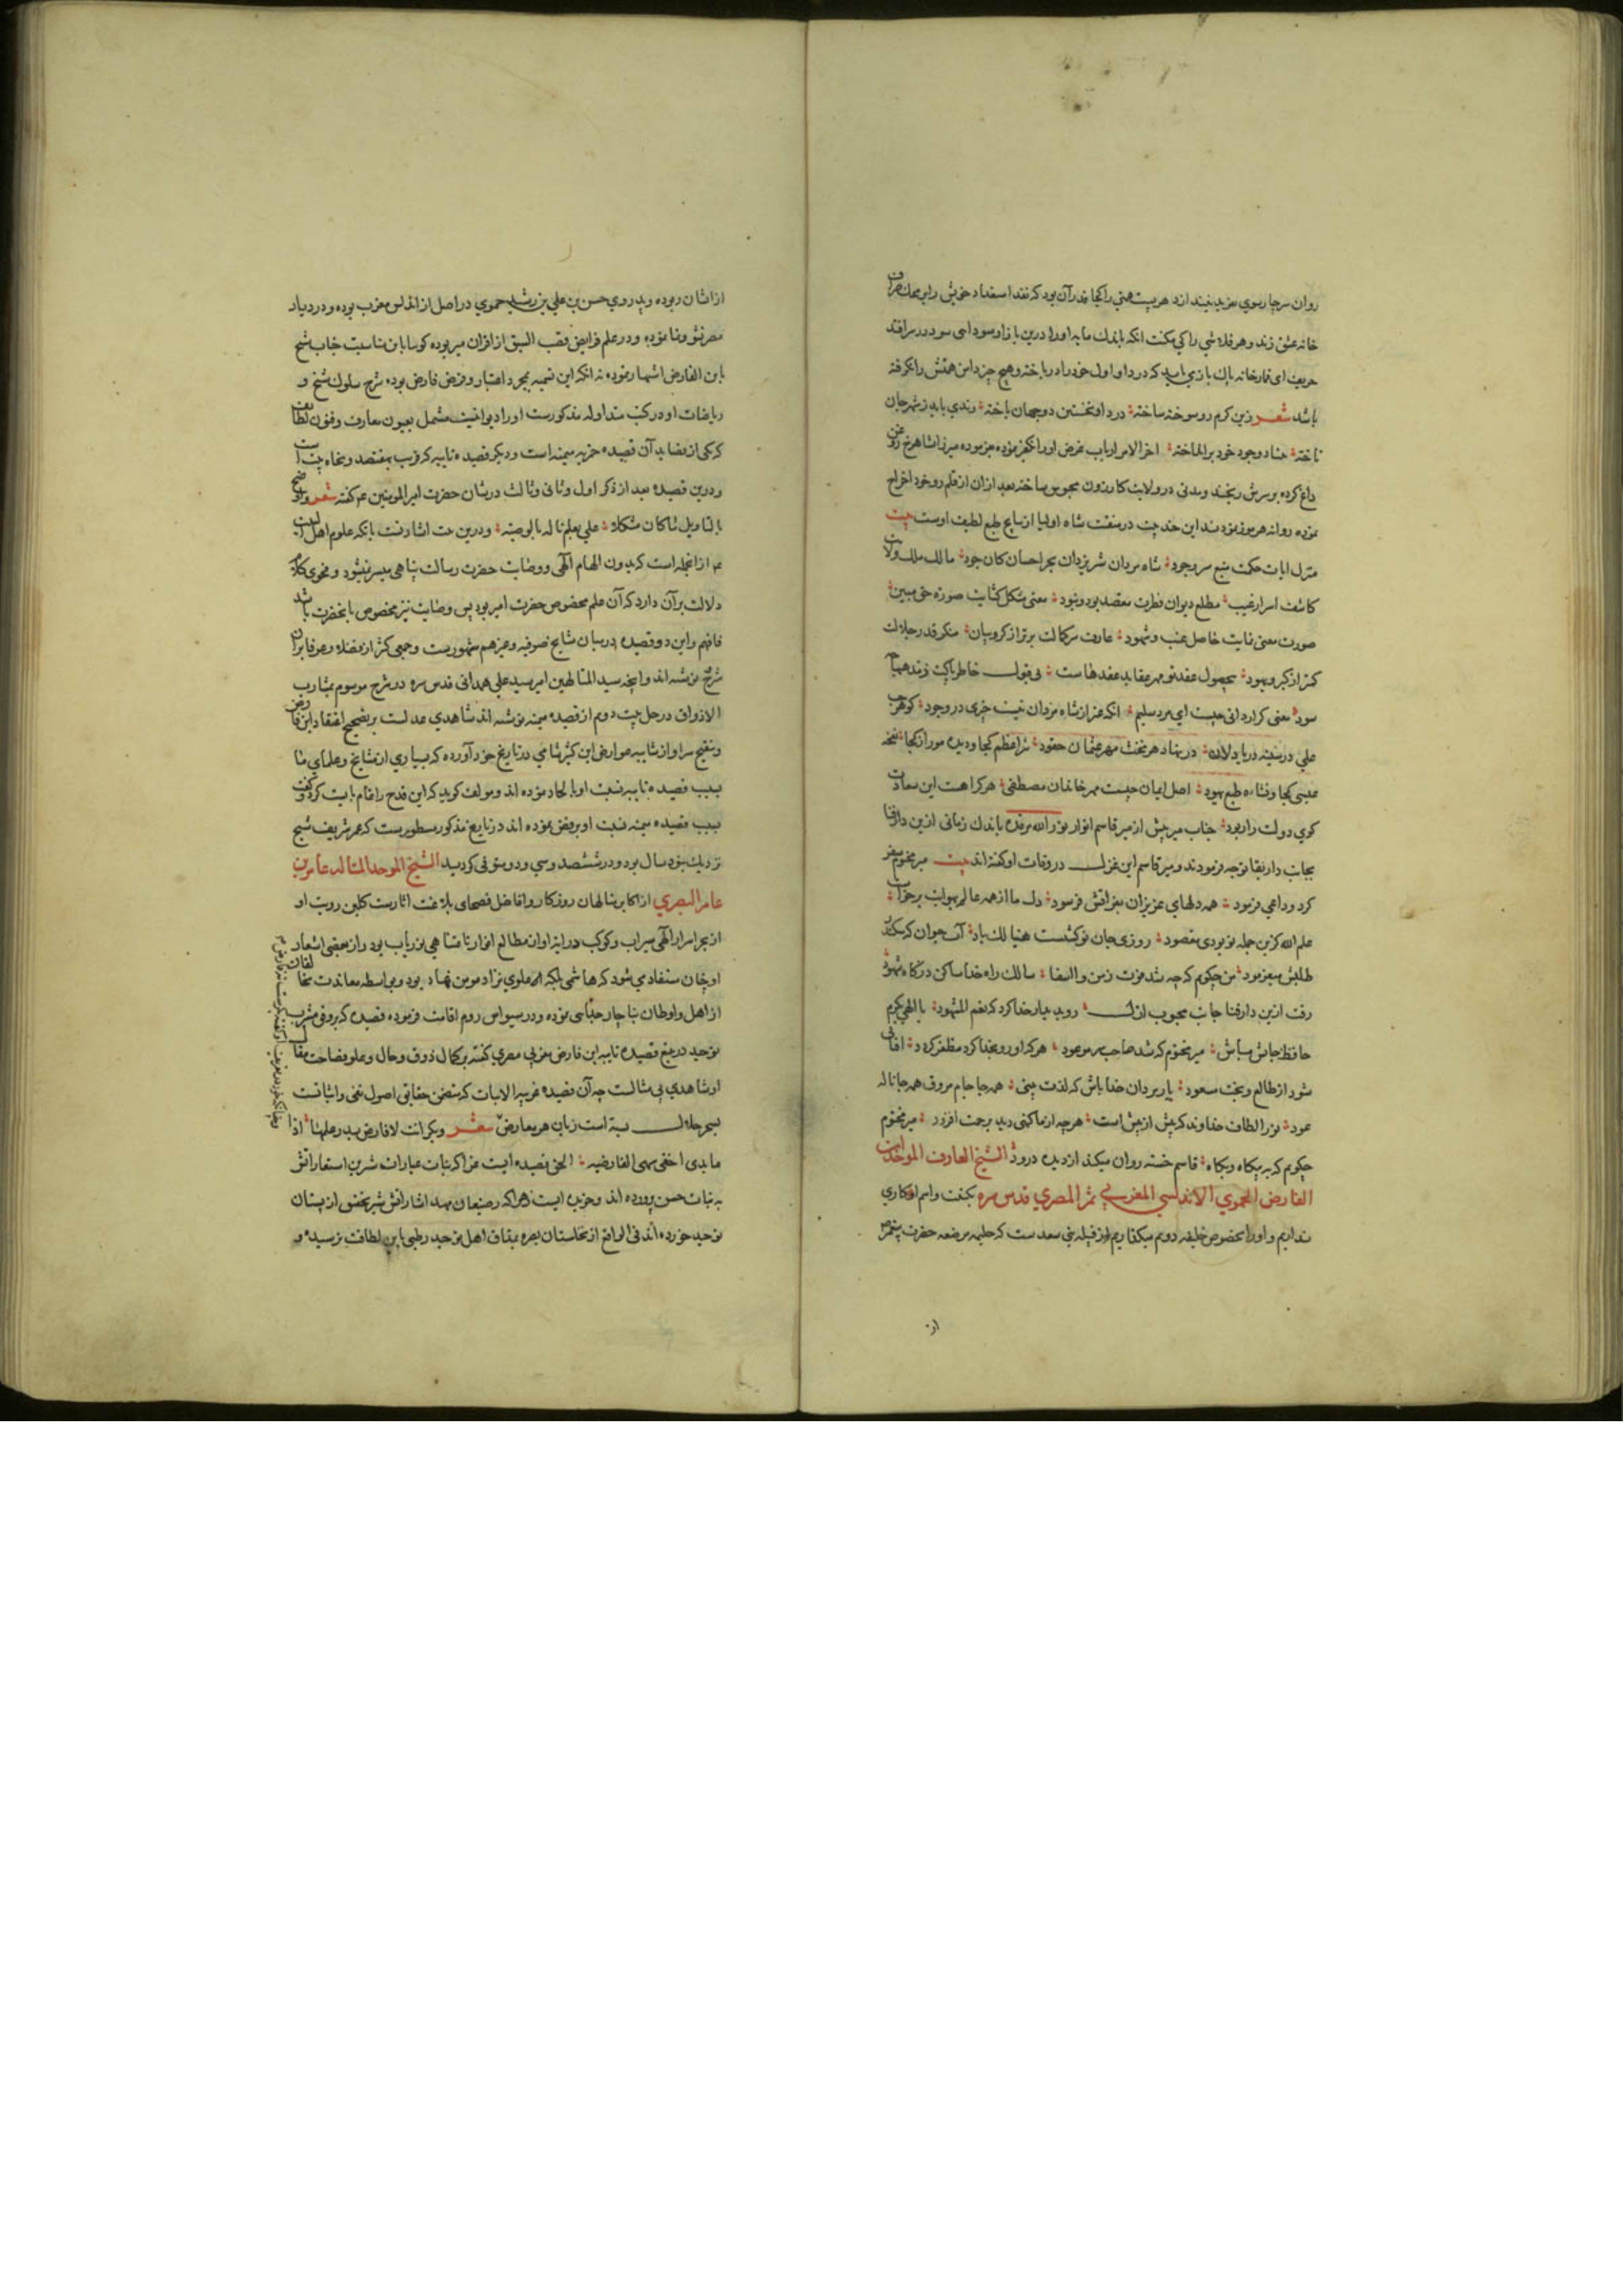 روان سر چار سوی
خانه عشق زند و هر قلاشی را کی مکنت آنکه باندك مایه او را درین بازار سودای سود در سر افتد
حریف ای قمارخانه پاك بازی باید که در داو اول خود را درباخته و هیچ چیز دامن همتش را نگرفته
باشد شعر زین کرم رو سوخته ساخته در داو نخستین دو جهان باخته رندی باید ز شهر جان
تاخته بنیاد وجود خود برانداخته آخر الامر ارباب غرض او را تکفیر نموده میرزا شاهرخ روغن
داغ کرده بر سرش ریختند و مدتی در ولایت کازرون محبوس ساخته بعد از آن از قلمرو خود اخراج
نموده روانه هرموز نمودند این چند بیت در منقبت شاه اولیا از نتایج طبع لطیف اوست بیت
منزل آیات حکمت منبع سر وجود شاه مردان شیر یزدان بحر احسان کان جود مالك ملك ولایت
کاشف اسرار غیب مطلع دیوان فطرت مقصد بود و نبود معنی مشکل کشایت صورت حق مبین
صورت معنی نمایت حاصل غیب و شهود عارف سر کمالت برتر از کروبیان منکر قدر جلالت
کمتر از کبر و یهود
سود معنی کرار دانی چیست ای مرد سلیم آنکه غیر از شاه مردان نیست چیزی در وجود کوهر حب
علی در سینه دریا دلان
عیسی کجا و نشاءه طبع یهود اصل ایمان چیست مهر خاندان مصطفی هر کرا هست این سعادت
کوی دولت را ربود جناب میر پیش از میر قاسم انوار نور الله مرقده باندك زمانی ازین دار فنا
بجانب دار بقا توجه فرمودند و میر قاسم این غزل در وفات او کفته اند بیت میر مختوم سفر
کرد و داعی فرمود همه دلهای عزیزان بفراقش فرسود دل ما از همه عالم بهوایت برخاست
علم الله کزین جمله تو بودی مقصود روزی جان تو کشتست هنیا لك باد آن جوان که
طلبش میفرمود من چکویم که چه شد فوت زمن والسفا سالك راه خدا ساکن درکاه شهود
رفت ازین دار فنا جانب محبوب ازل روی بدیدار خدا کرد که نعم المشهود یا الهی بکرم
حافظ جانش میباش میر مختوم که شد صاحب سر موعود هر که او رو بخدا کرد مظفر کردد آفتابی
شود از طالع و بخت سعود یار مردان خدا باش که لذت بینی همه جا جام مروق همه جا ناله
عود نور الطاف خداوند کریمش از پیش است هر چه از ما کنی دید برحمت افزود میر مختوم
چکویم که به بیکاه و بکاه قاسم خسته روان میکند از دیده درود الشیخ العارف الموحد ابن
الفارض الحموی الاندلسی المغربی ثم المصری قدس سره بکنیت و اسم او کاری
نداریم و او را بخصوص خلیفه دویم میکذاریم از قبیله بنی سعد ست که حلیمه مرضعه حضرت پیغمبر
از
از ایشان بوده و پدر وی حسن بن علی بن رشید حموی در اصل از اندلس مغرب بوده و در دیار
مصر نشو و نما نموده و در علم فرایض قصب السبق از اقران میربوده کویا باین مناسبت جناب شیخ
بابن الفارض اشتهار نموده نه آنکه این تسمیه بمجرد اعتبار و فرض فارض بود شرح سلوك شیخ و
ریاضات او در کتب متداوله مذکورست او را دیوانیست مشتمل بعیون معارف و فنون لطایف
که یکی از قصاید آن قصیده خمریه میمیه است و دیکر قصیده تاییه که قریب بهفتصد و پنجاه بیت است
و درین قصیده بعد از ذکر اول و ثانی و ثالث در شان حضرت امیر المومنین ع م کفته شعر و اوضح
بالتاویل ما کان مشکلا علی بعلم ناله بالوصیة و درین بیت اشارتست بآنکه علوم اهل البیت
ع م از آنجمله است که بدون الهام الهی و وصایت حضرت رسالت پناهی میسر نمیشود و فحوی کلام
دلالت بر آن دارد که آن علم مخصوص حضرت امیر بود پس وصایت نیز مخصوص بآنحضرت باشد
فافهم و این دو قصیده در میان مشایخ صوفیه و غیرهم مشهوریست و جمعی کثیر از فضلا و عرفا بر آن
شرح نوشته اند و آنچه سید المتالهین امیر سید علی همدانی قدس سره در شرح موسوم بمشارب
الاذواق در حل بیت دوم از قصیده میمیه نوشته اند شاهدی عدلست بر تصحیح اعتقاد ابن فارض
و تنقیح سر او از شایبه عوارض ابن کثیر شامی در تاریخ خود آورده که بسیاری از مشایخ و علمای ما
بسبب قصیده تاییه نسبت او بالحاد نموده اند و مولف کوید که این قدح را تمام بایست کرد و کفت
بسبب قصیده میمیه نسبت او برفض نموده اند در تاریخ مذکور مسطورست که عمر شریف شیخ
نزدیك بنود سال بود و در ششصد و سی و دو متوفی کردید الشیخ الموحد المتاله عامر بن
عامر البصری از اکابر متالهان روزکار و افاضل فصحای بلاغت آثارست کلبن رویت او
از بحر اسرار الهی سیراب و کوکب درایة او از مطالع انوار نامتناهی نوریاب بود و از بعضی اشعار
او چنان مستفاد می شود که هاشمی بلکه علوی نژاد مومن نهاد بود و بواسطه معاندت مخالفان
از اهل و اوطان بناچار جدایی نموده و در سیواس روم اقامت فرموده قصیده که بر وفق مشرب
توحید در تتبع قصیده تاییه ابن فارض مغربی مصری کفته بر کمال ذوق و حال و علو فصاحت مقال
او شاهدی بی مثالست چه آن قصیده غریبه الابیات که متضمن حقایق اصول نفی و اثباتست
بسحر حلال بسته است زبان هر معارض شعر و بکر اتت لا فارض بید رعلمها اذا
ما بدی اخفی سهی الفارضیه الحق قصیده ایست غرا که بنات عبارات شیرین استعاراتش
به نبات حسن پرورده اند و خریده ایست زهرا که رضیعان مهد اشاراتش شیر تحقیق از پستان
توحید خورده اند فی الواقع از نخلستان بصره بمذاق اهل توحید رطبی باین لطافت نرسیده و